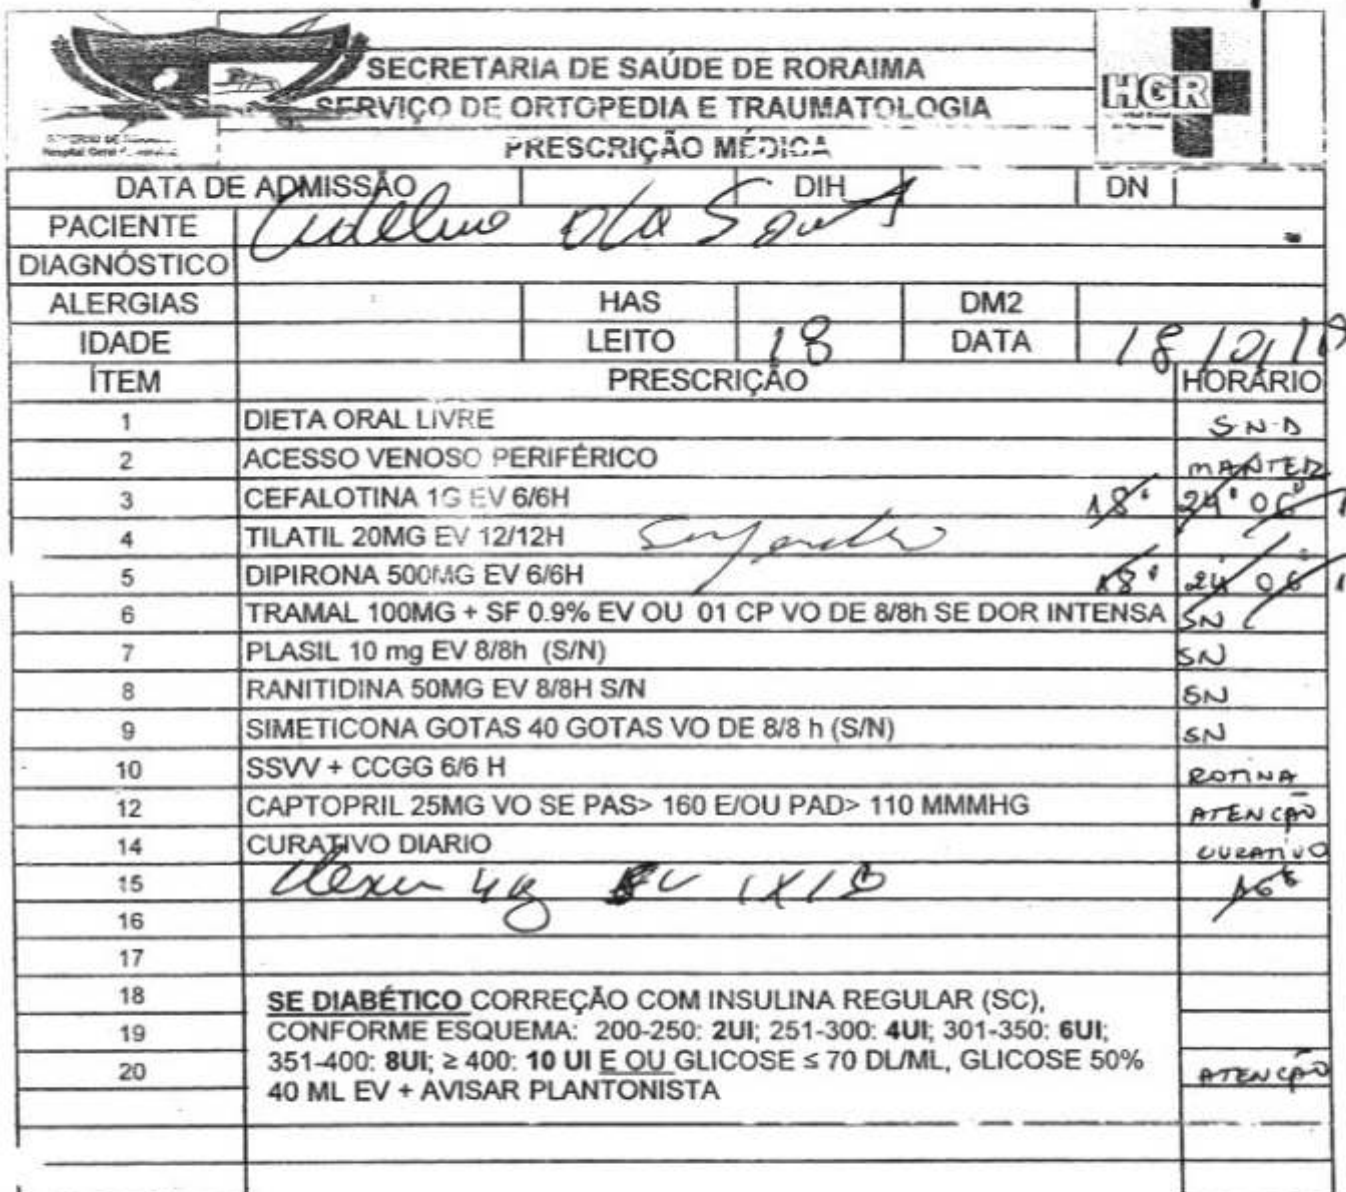 SECRETARIA DE SAÚDE DE RORAIMA
SERVIÇO DE ORTOPEDIA E TRAUMATOLOGIA
PRESCRIÇÃO MÉDICA
HGR
DATA DE ADMISSÃO DIH DN
PACIENTE
DIAGNÓSTICO
ALERGIAS HAS DM2
IDADE LEITO 18 DATA
ÍTEM PRESCRIÇÃO HORÁRIO
1 DIETA ORAL LIVRE S.N.D
2 ACESSO VENOSO PERIFÉRICO MANTER
3 CEFALOTINA 1G EV 6/6H 18 24 06
4 TILATIL 20MG EV 12/12H
5 DIPIRONA 500MG EV 6/6H 18 24 06
6 TRAMAL 100MG + SF 0.9% EV OU 01 CP VO DE 8/8h SE DOR INTENSA SN
7 PLASIL 10 mg EV 8/8h (S/N) SN
8 RANITIDINA 50MG EV 8/8H S/N SN
9 SIMETICONA GOTAS 40 GOTAS VO DE 8/8 h (S/N) SN
10 SSVV + CCGG 6/6 H ROTINA
12 CAPTOPRIL 25MG VO SE PAS> 160 E/OU PAD> 110 MMMHG ATENÇÃO
14 CURATIVO DIARIO CURATIVO
15
16
17
18 SE DIABÉTICO CORREÇÃO COM INSULINA REGULAR (SC),
19 CONFORME ESQUEMA: 200-250: 2UI; 251-300: 4UI; 301-350: 6UI;
20 351-400: 8UI; ≥ 400: 10 UI E OU GLICOSE ≤ 70 DL/ML, GLICOSE 50% ATENÇÃO
40 ML EV + AVISAR PLANTONISTA